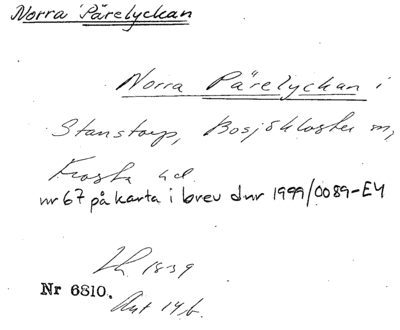 Norra Pärelyckan
Norra Pärelyckan i
Stanstorp, Bosjökloster sn,
Frosta hd
nr 67 på karta i brev dnr 1999/0089-EY
Lh. 1839
Nr 6810.
Akt 14b.